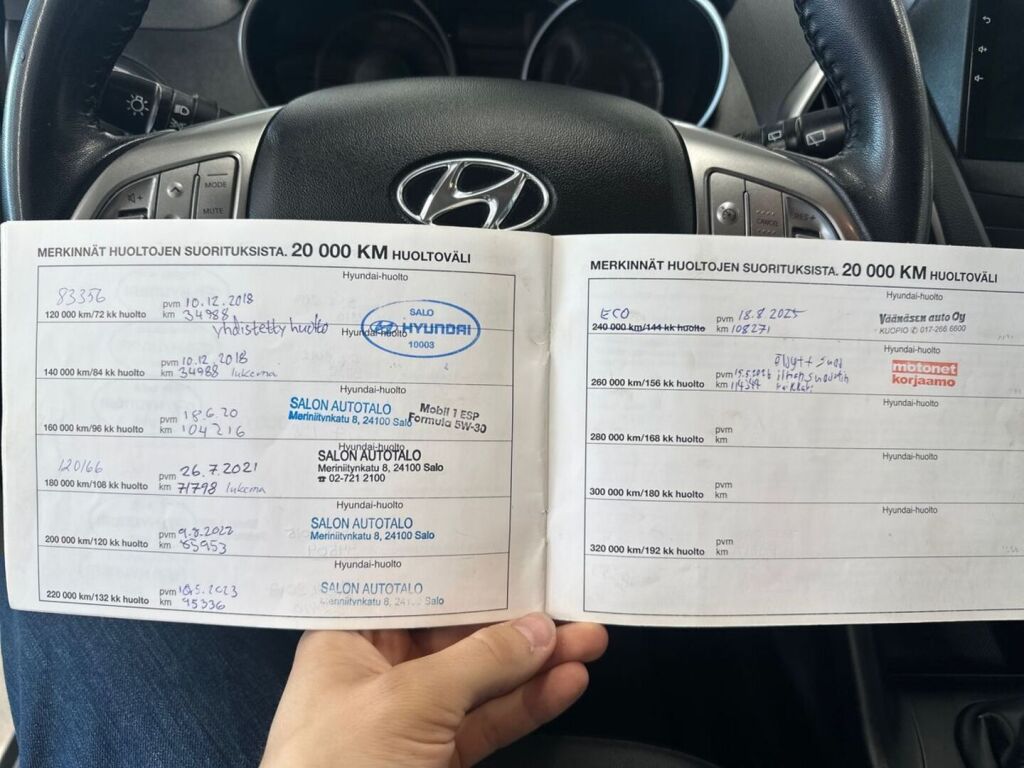 MODE
MUTE
CANCEL
RES+
MERKINNÄT HUOLTOJEN SUORITUKSISTA. 20 000 KM HUOLTOVÄLI
Hyundai-huolto
83356
pvm 10.12.2018
120 000 km/72 kk huolto km 34988
yhdistetty huolto
SALO
HYUNDAI
10003
Hyundai-huolto
pvm 10.12.2018
140 000 km/84 kk huolto km 34988 lukema
Hyundai-huolto
SALON AUTOTALO
Meriniitynkatu 8, 24100 Salo
Mobil 1 ESP
Formula 5W-30
pvm 18.6.20
160 000 km/96 kk huolto km 104216
Hyundai-huolto
SALON AUTOTALO
Meriniitynkatu 8, 24100 Salo
☎ 02-721 2100
120166
pvm 26.7.2021
180 000 km/108 kk huolto km 71798 lukema
Hyundai-huolto
SALON AUTOTALO
Meriniitynkatu 8, 24100 Salo
pvm 9.8.2022
200 000 km/120 kk huolto km 85953
Hyundai-huolto
SALON AUTOTALO
Meriniitynkatu 8, 24100 Salo
pvm 10.5.2023
220 000 km/132 kk huolto km 95336
MERKINNÄT HUOLTOJEN SUORITUKSISTA. 20 000 KM HUOLTOVÄLI
Hyundai-huolto
ECO
pvm 18.8.2025
240 000 km/144 kk huolto km 108271
Väänäsen auto Oy
KUOPIO ✆ 017-266 6600
Hyundai-huolto
Öljyt + suod
pvm 15.5.2026 ilmansuodatin
260 000 km/156 kk huolto km 114344
motonet
korjaamo
Hyundai-huolto
pvm
280 000 km/168 kk huolto km
Hyundai-huolto
pvm
300 000 km/180 kk huolto km
Hyundai-huolto
pvm
320 000 km/192 kk huolto km